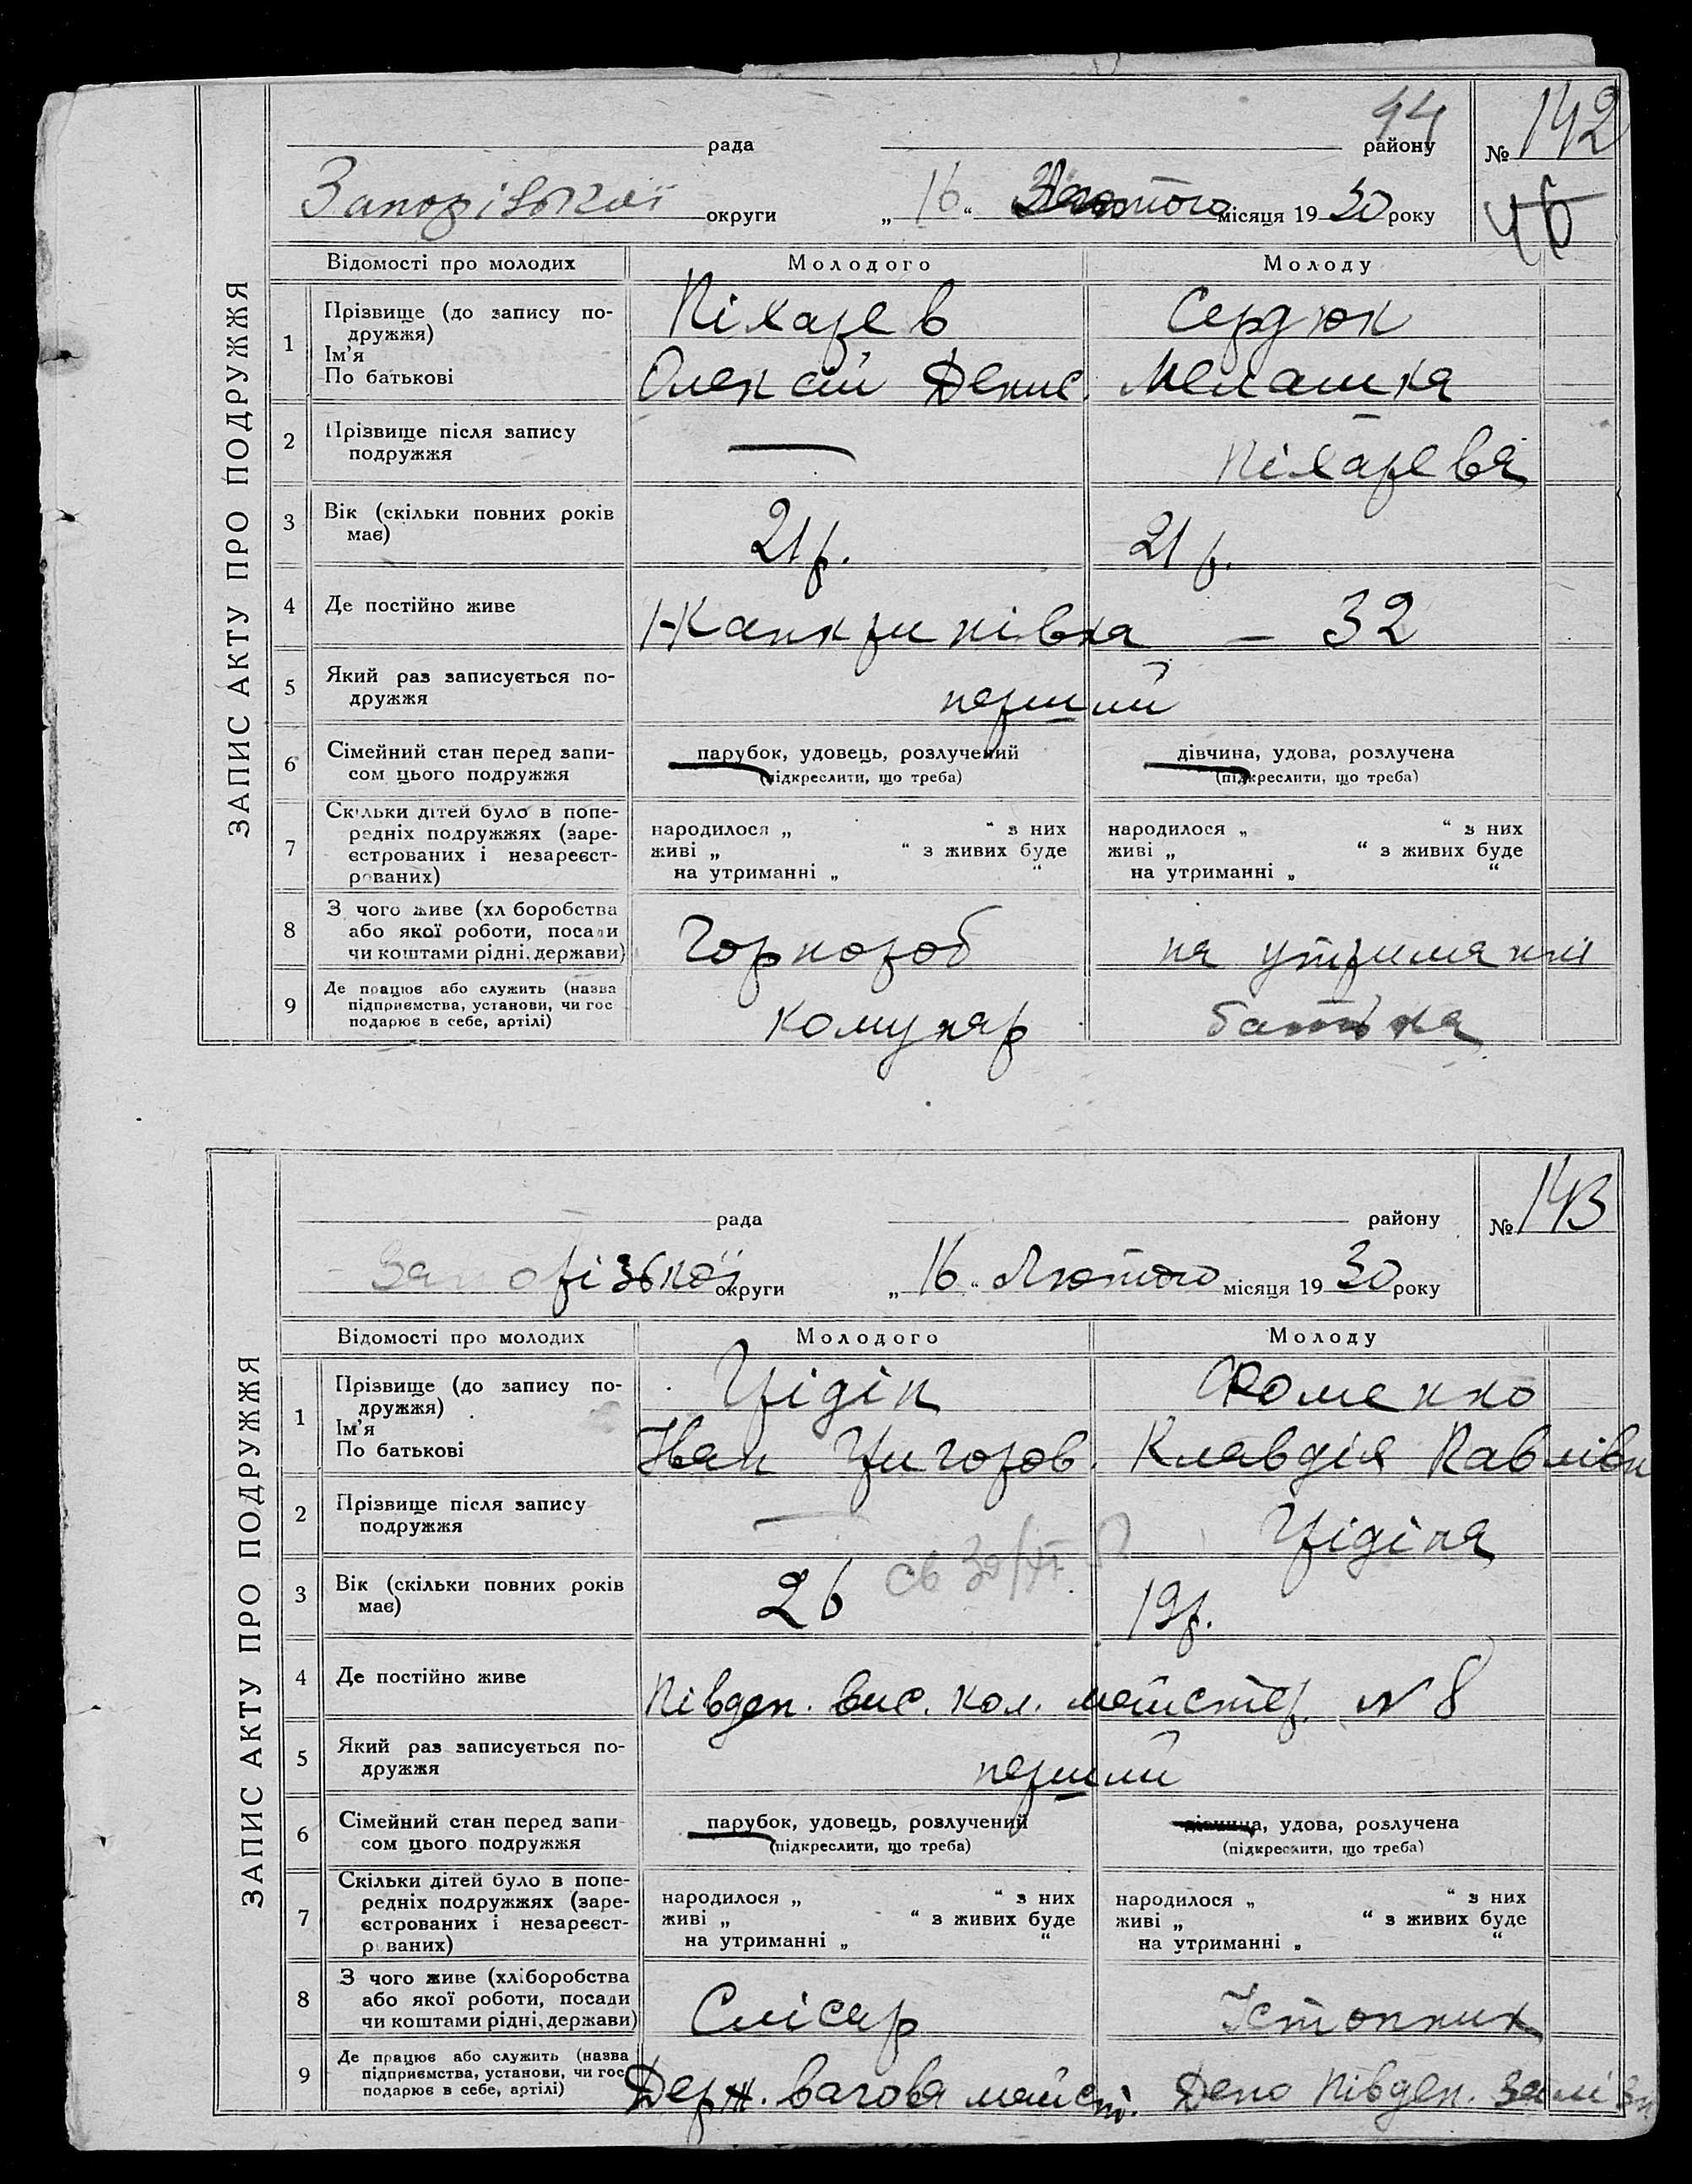 44
рада району № 142
Запорізької округи „ 16 “ Лютого місяця 19 30 року 46
ЗАПИС АКТУ ПРО ПОДРУЖЖЯ
Відомості про молодих Молодого Молоду
1 Прізвище (до запису по-
дружжя) Піхарев Сердюк
Ім'я
По батькові Олексій Денис. Мелашка
2 Прізвище після запису
подружжя — Піхарева
3 Вік (скільки повних років
має) 21 р. 21 р.
4 Де постійно живе Н-Канкринівка – 32
5 Який раз записується по-
дружжя перший
6 Сімейний стан перед запи-
сом цього подружжя
парубок, удовець, розлучений дівчина, удова, розлучена
(підкреслити, що треба) (підкреслити, що треба)
7 Скільки дітей було в попе-
редніх подружжях (заре-
єстрованих і незареєст-
рованих)
народилося „ “ з них народилося „ “ з них
живі „ “ з живих буде живі „ “ з живих буде
на утриманні „ “ на утриманні „ “
8 З чого живе (хліборобства
або якої роботи, посади
чи коштами рідні, держави) Чорнороб на утриманні
9 Де працює або служить (назва
підприємства, установи, чи гос
подарює в себе, артілі) комунар батька
рада району № 143
Запорізької округи „ 16 “ Лютого місяця 19 30 року
ЗАПИС АКТУ ПРО ПОДРУЖЖЯ
Відомості про молодих Молодого Молоду
1 Прізвище (до запису по-
дружжя) Грідін Фоменко
Ім'я
По батькові Іван Григоров. Клавдія Павлівн
2 Прізвище після запису
подружжя — Грідіна
3 Вік (скільки повних років
має) 26 19 р.
4 Де постійно живе Півден. вис. кол. майстер. № 8
5 Який раз записується по-
дружжя перший
6 Сімейний стан перед запи-
сом цього подружжя
парубок, удовець, розлучений дівчина, удова, розлучена
(підкреслити, що треба) (підкреслити, що треба)
7 Скільки дітей було в попе-
редніх подружжях (заре-
єстрованих і незареєст-
рованих)
народилося „ “ з них народилося „ “ з них
живі „ “ з живих буде живі „ “ з живих буде
на утриманні „ “ на утриманні „ “
8 З чого живе (хліборобства
або якої роботи, посади
чи коштами рідні, держави) Слісар Істопник
9 Де працює або служить (назва
підприємства, установи, чи гос
подарює в себе, артілі) Держ. вагова майст. Депо Півден. залізн